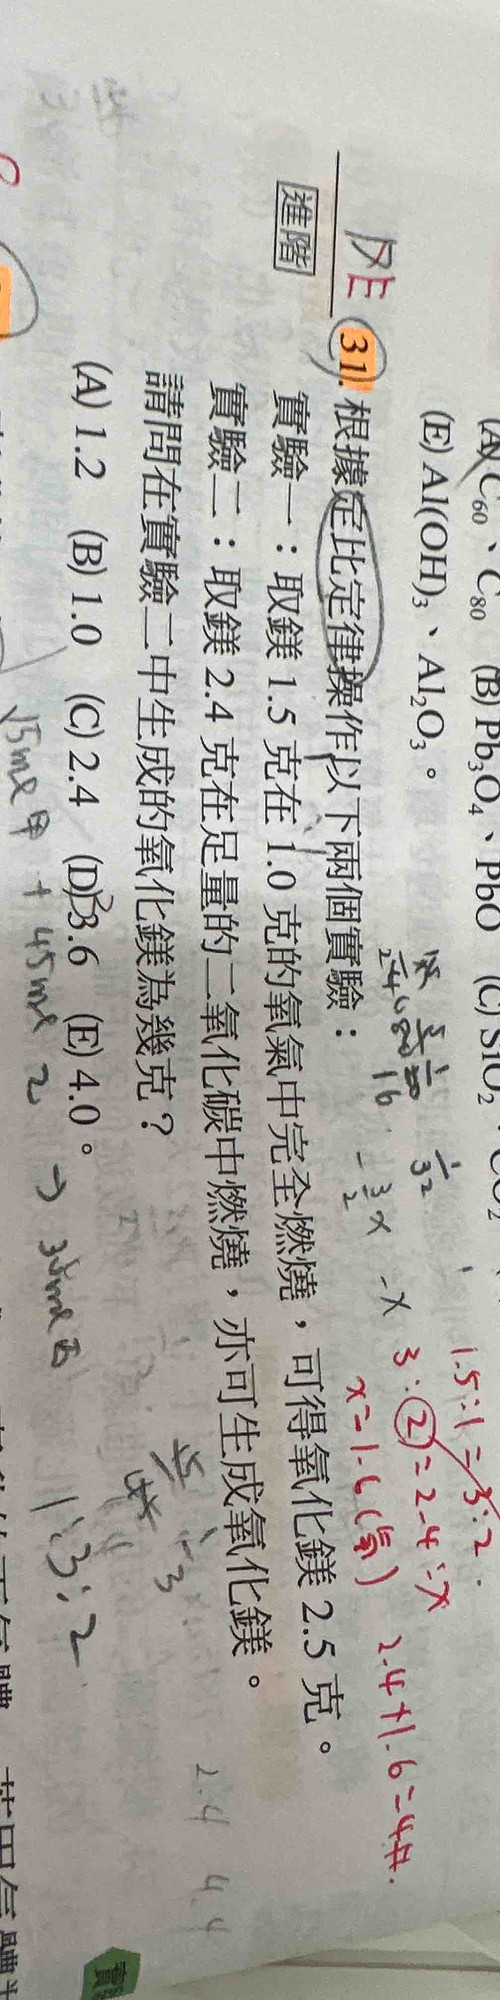 (A) C₆₀、C₈₀ (B) Pb₃O₄、PbO (C) SiO₂、CO₂
(E) Al(OH)₃、Al₂O₃。
1.5:1=3:2
3:2=2.4:x
x=1.6(氧)
2.4+1.6=4#.
DE
31. 根據定比定律操作以下兩個實驗：
進階
實驗一：取鎂 1.5 克在 1.0 克的氧氣中完全燃燒，可得氧化鎂 2.5 克。
實驗二：取鎂 2.4 克在足量的二氧化碳中燃燒，亦可生成氧化鎂。
請問在實驗二中生成的氧化鎂為幾克？
(A) 1.2 (B) 1.0 (C) 2.4 (D) 3.6 (E) 4.0。
2.4 4.4
15ml 甲 + 45ml 乙 → 30ml 丙
1:3:2